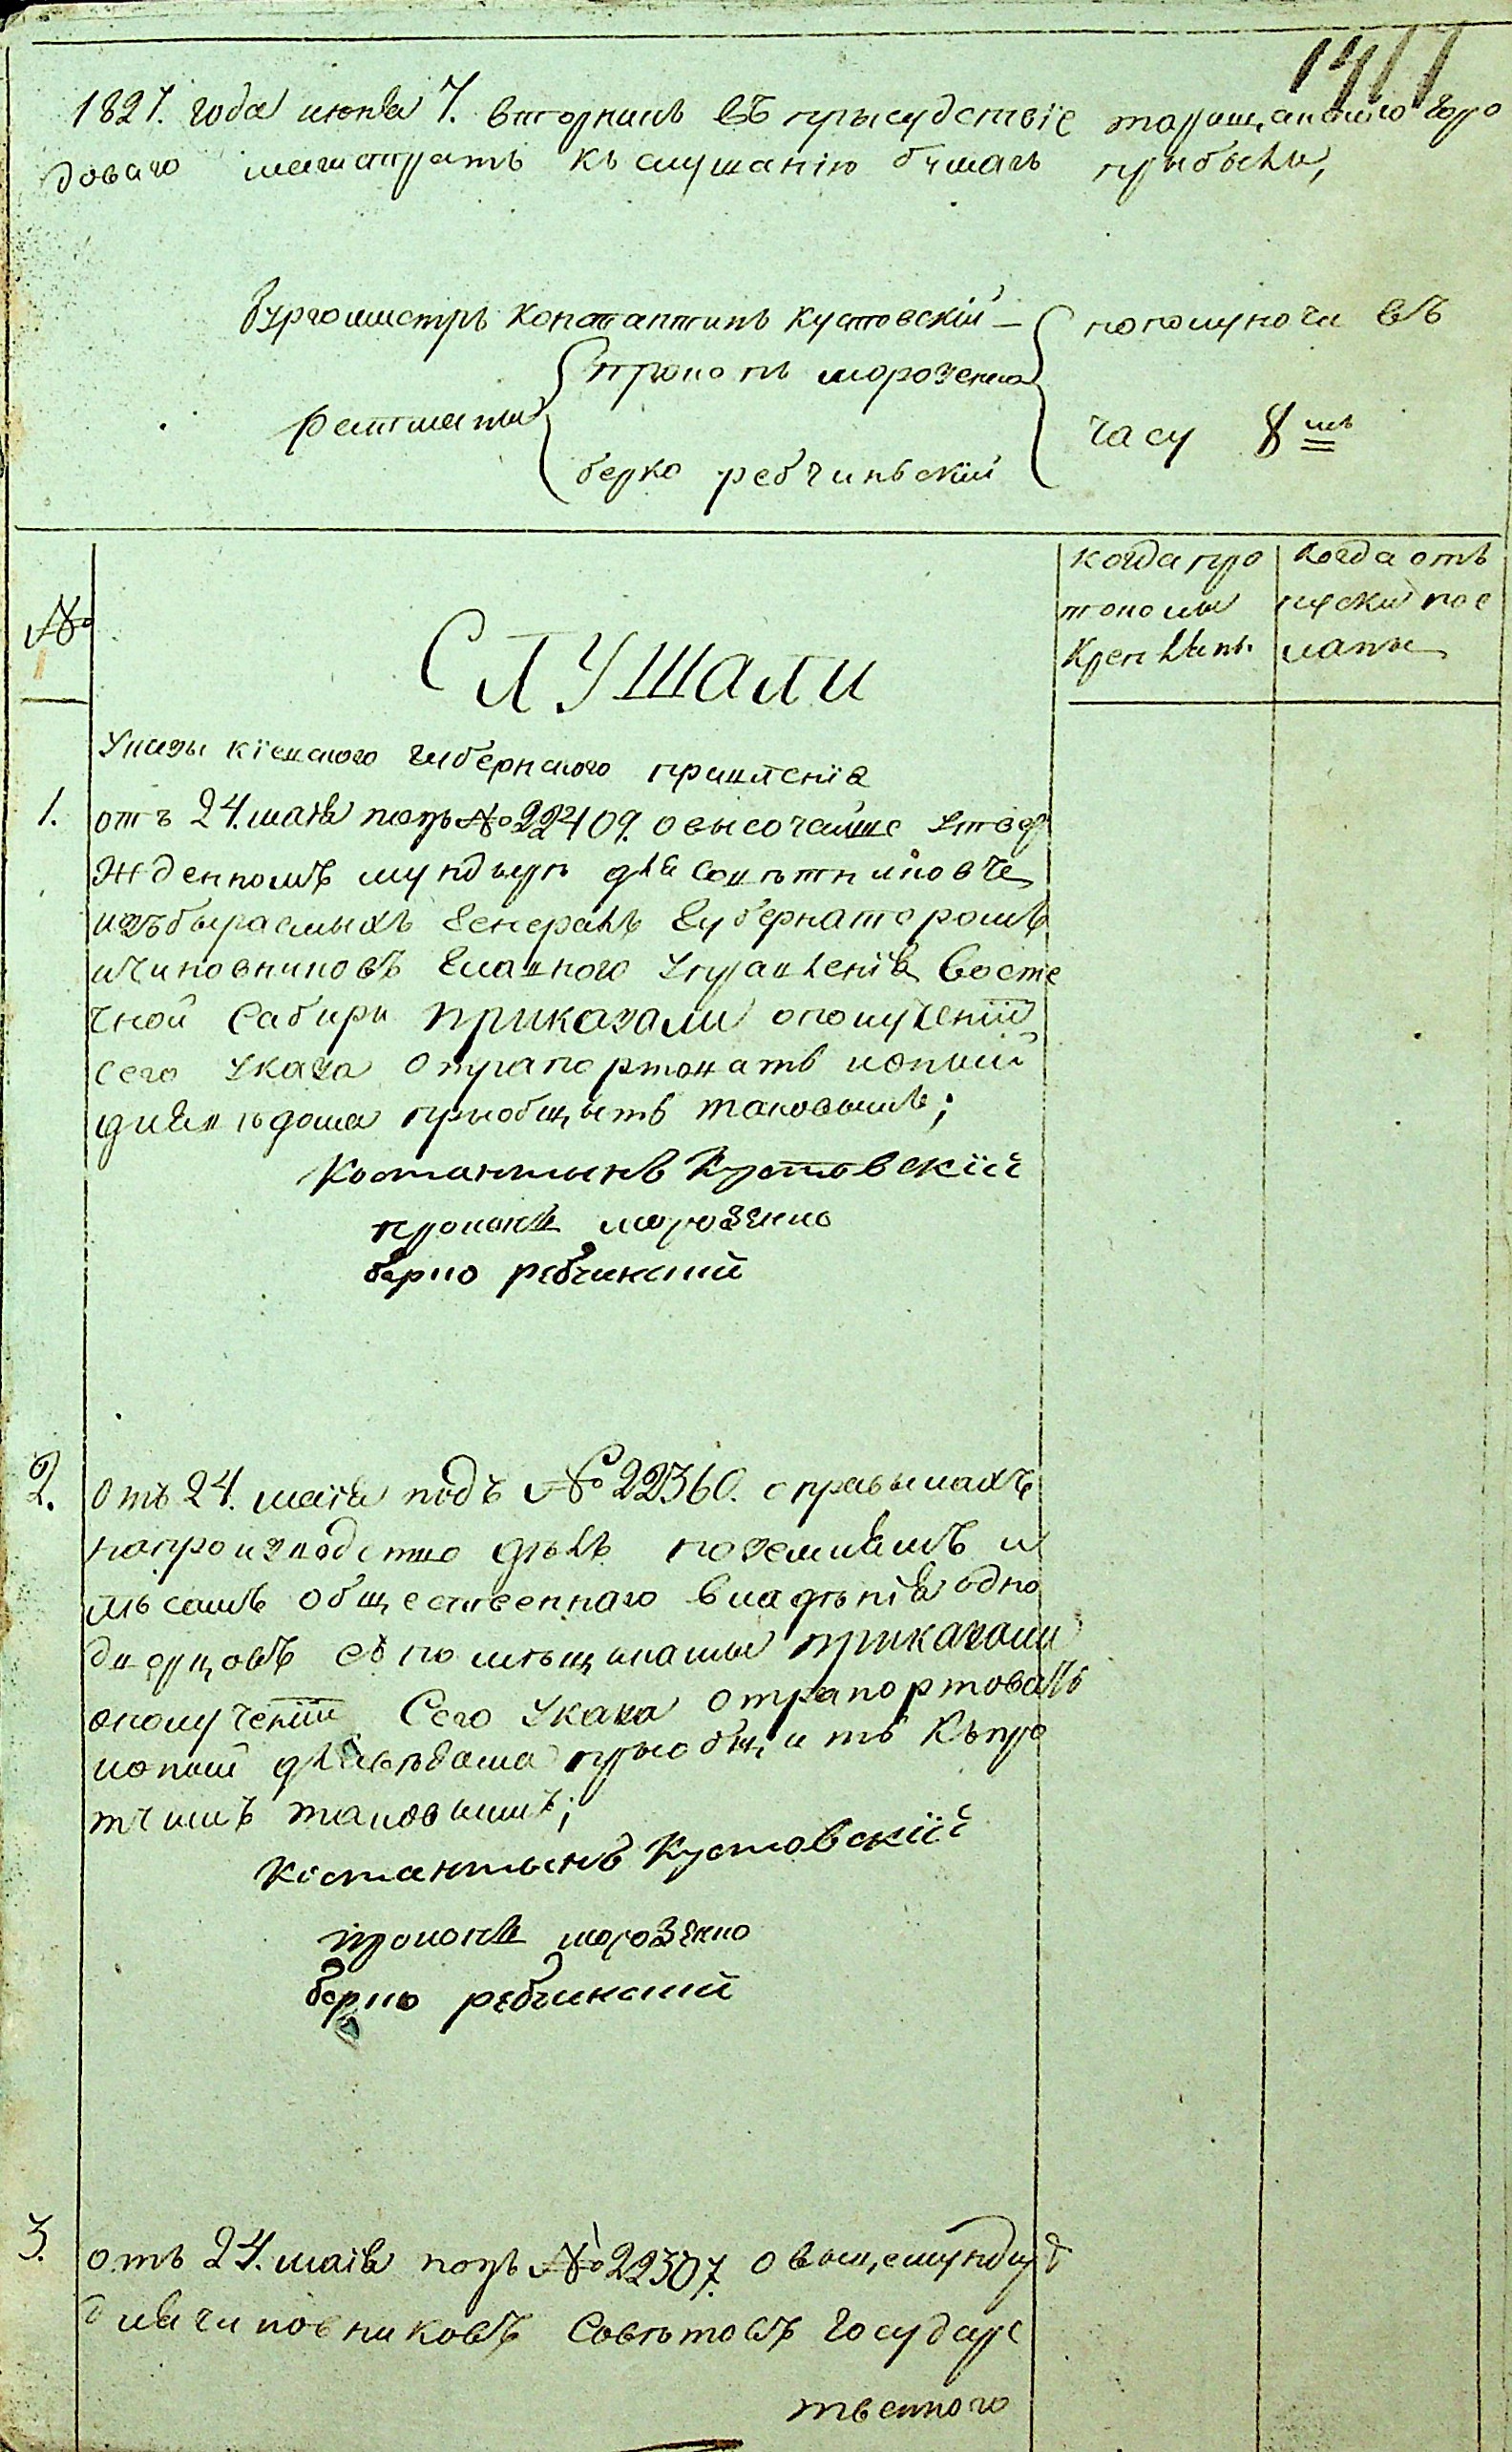 1827. года июня 7. вторникъ въ прысудствіе таращанского горо
доваго магистратъ къ слушанію бумагъ прыбыли,
бургомистръ Констаптинъ Кустовскій — пополуночи въ
ратманы
прокопъ морозенко
берко ребчиньскій
часу 8 мъ
№
СЛУШали
когда про
токолы
Крепленъ.
Когда отъ
пуски пос
ланы
Указы кіевского губернского правленія
1. отъ 24. маія подъ № 22409. о высочайше утвер
жденномъ мундыръ для совѣтниковъ
избыраемыхъ Генералъ Губернаторомъ
и чиновниковъ Главного управленія Восто
чной Сабири приказали ополученіи
сего указа отрапортовать копіи
для вѣдома приобщыть таковымъ;
Костантынъ Кустовскій
прокопъ морозенко
берко ребчинский
2. отъ 24. маія подъ № 22360. о правылахъ
на производство дѣлъ по землямъ и
лѣсамъ общественнаго владѣнія одно
дворцовъ съ помѣщиками приказали
ополученіи Сего указа отрапортовать
копіи для вѣдома приобщить Къ про
тчимъ таковымъ;
Костантынъ Кустовскій
прокопъ морозенко
берко ребчинский
3. отъ 24. маія подъ № 22307. о вице мундир
для чиновниковъ Совѣтовъ Государс
твенного